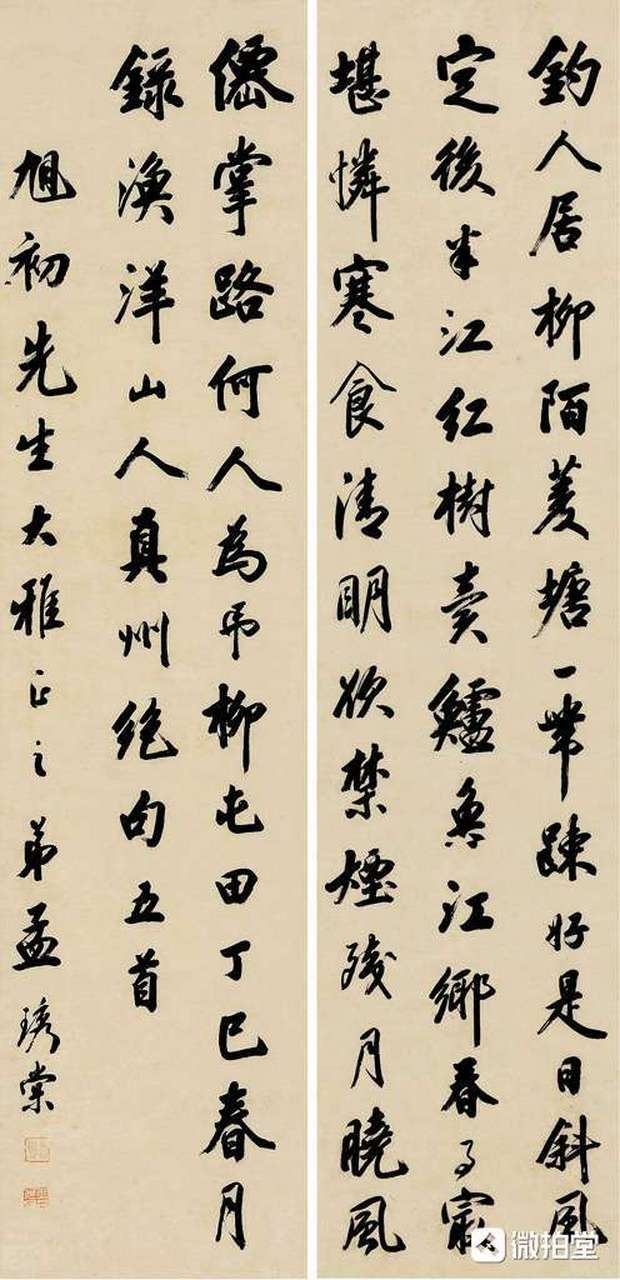 釣人居柳陌菱塘一帶踈好是日斜風
定後半江紅樹賣鱸魚江鄉春事冣
堪憐寒食清明欲禁煙殘月曉風
僊掌路何人為弔柳屯田丁巳春月
錄漁洋山人真州絕句五首
旭初先生大雅正之弟孟琇棠
微拍堂